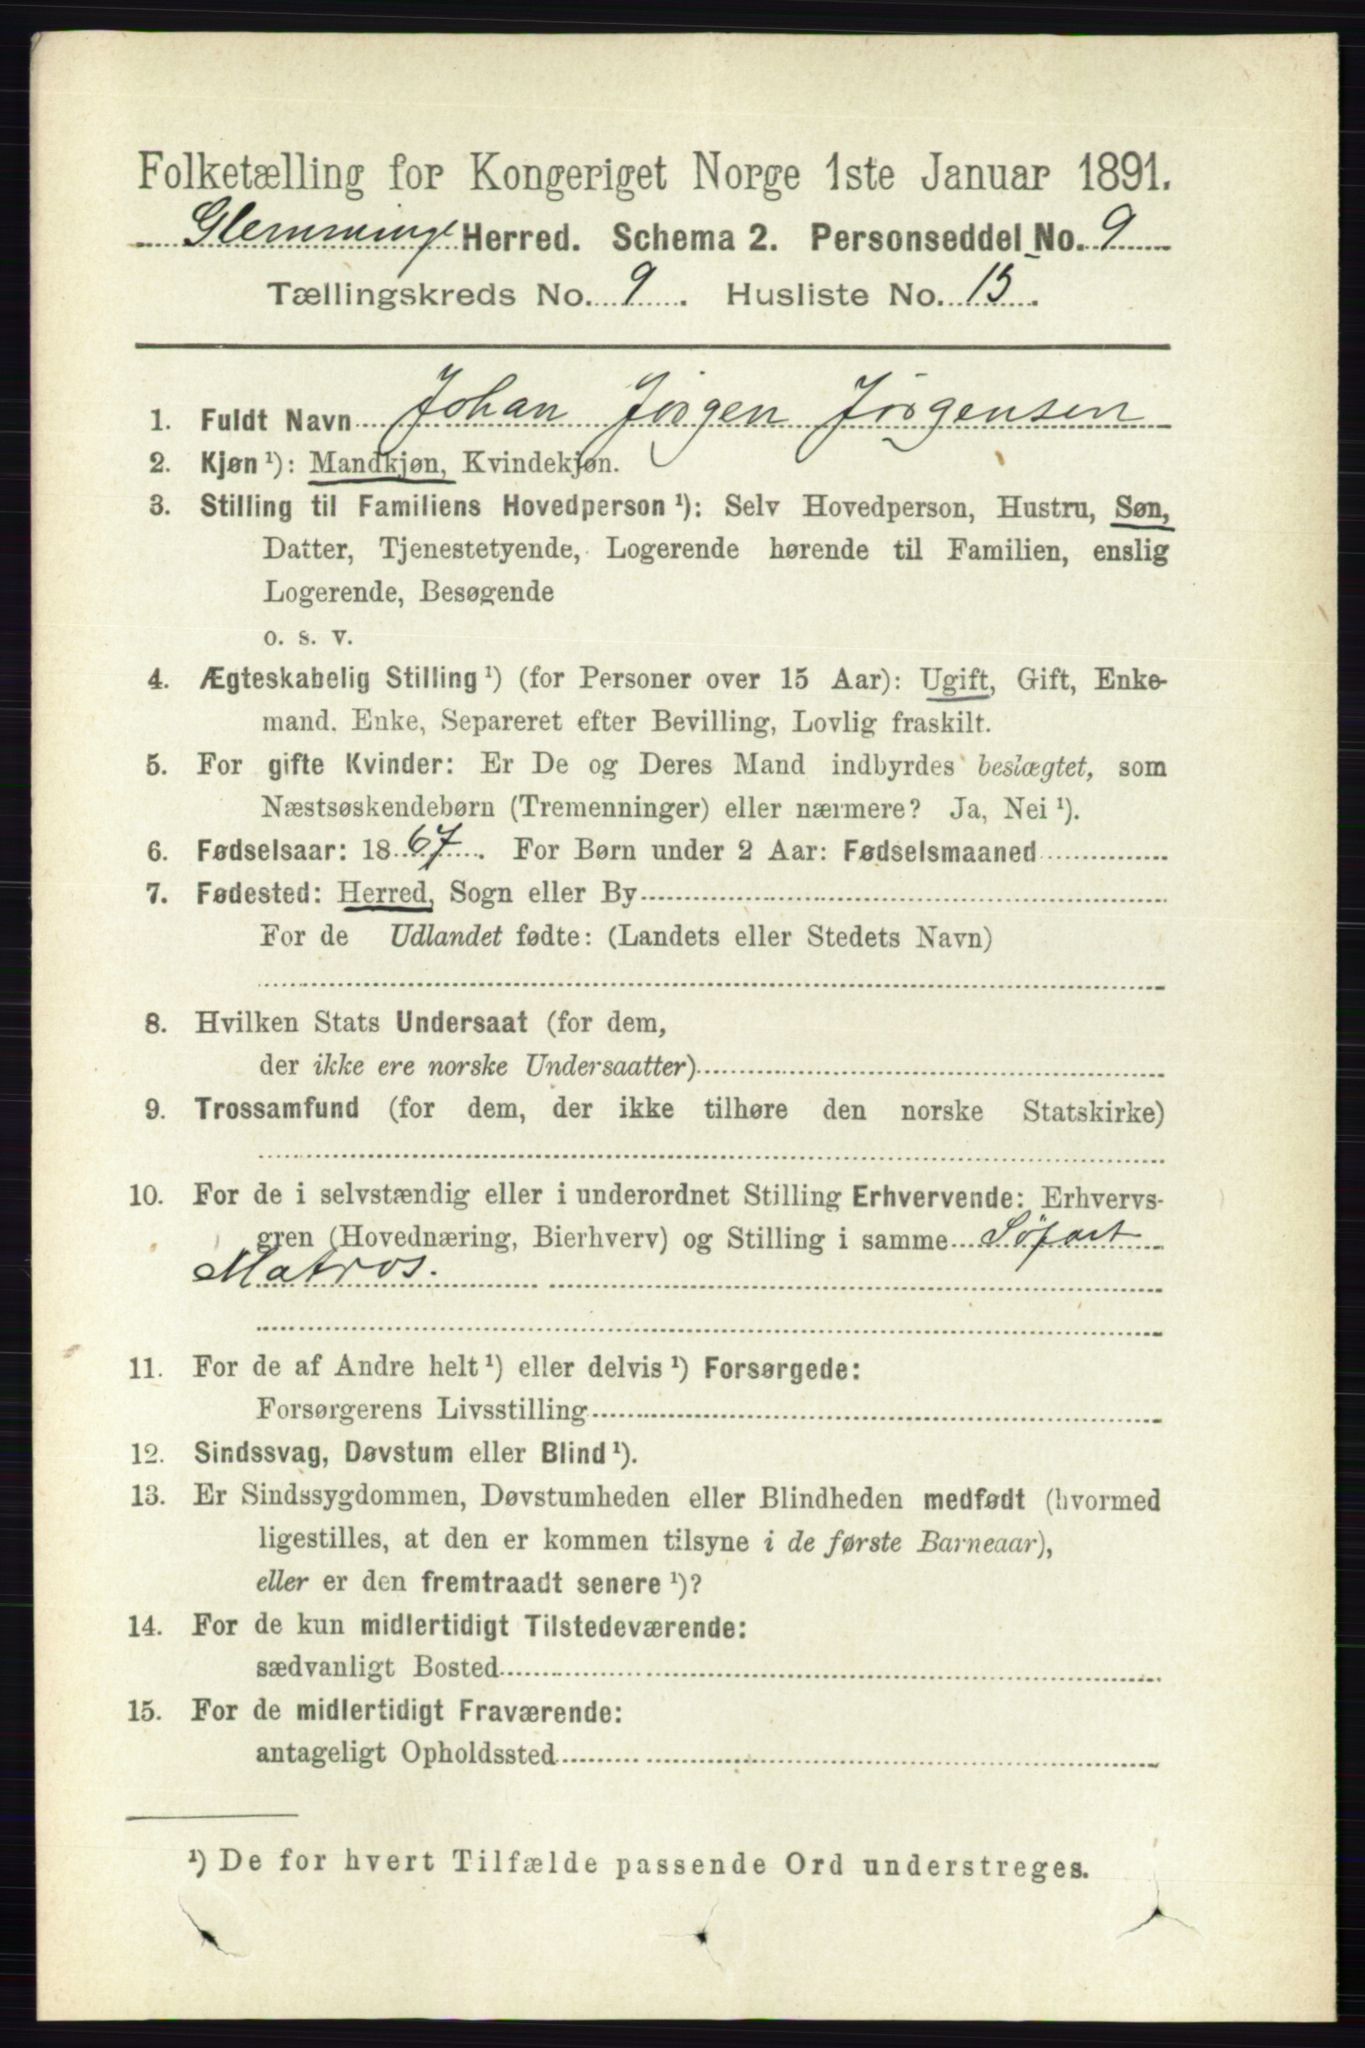 Folketælling for Kongeriget Norge 1ste Januar 1891.
Glemminge Herred. Schema 2. Personseddel No. 9
Tællingskreds No. 9. Husliste No. 13.
1. Fuldt Navn Johan Jørgen Jørgensen
2. Kjøn ¹): Mandkjøn, Kvindekjøn.
3. Stilling til Familiens Hovedperson ¹): Selv Hovedperson, Hustru, Søn,
Datter, Tjenestetyende, Logerende hørende til Familien, enslig
Logerende, Besøgende
o. s. v.
4. Ægteskabelig Stilling ¹) (for Personer over 15 Aar): Ugift, Gift, Enke-
mand. Enke, Separeret efter Bevilling, Lovlig fraskilt.
5. For gifte Kvinder: Er De og Deres Mand indbyrdes beslægtet, som
Næstsøskendebørn (Tremenninger) eller nærmere? Ja, Nei ¹).
6. Fødselsaar: 1867. For Børn under 2 Aar: Fødselsmaaned
7. Fødested: Herred, Sogn eller By
For de Udlandet fødte: (Landets eller Stedets Navn)
8. Hvilken Stats Undersaat (for dem,
der ikke ere norske Undersaatter)
9. Trossamfund (for dem, der ikke tilhøre den norske Statskirke)
10. For de i selvstændig eller i underordnet Stilling Erhvervende: Erhvervs-
gren (Hovednæring, Bierhverv) og Stilling i samme Söfart
Matros.
11. For de af Andre helt ¹) eller delvis ¹) Forsørgede:
Forsørgerens Livsstilling
12. Sindssvag, Døvstum eller Blind ¹).
13. Er Sindssygdommen, Døvstumheden eller Blindheden medfødt (hvormed
ligestilles, at den er kommen tilsyne i de første Barneaar),
eller er den fremtraadt senere ¹)?
14. For de kun midlertidigt Tilstedeværende:
sædvanligt Bosted
15. For de midlertidigt Fraværende:
antageligt Opholdssted
¹) De for hvert Tilfælde passende Ord understreges.